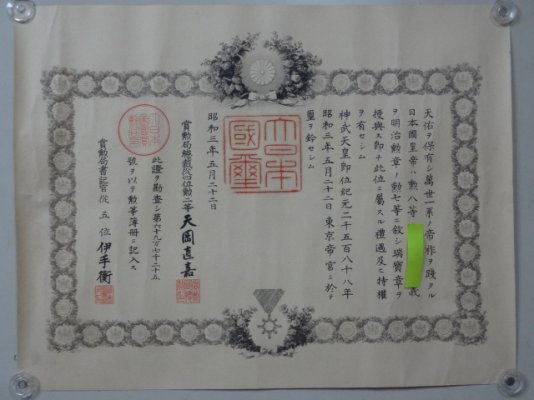 天佑ヲ保有シ萬世一系ノ帝祚ヲ踐タル
日本國皇帝ハ勲八等 義
ヲ明治勲章ノ勲七等ニ敘シ瑞寶章ヲ
授與ス即チ此位ニ屬スル禮遇及ヒ特權
ヲ有セシム
神武天皇即位紀元二千五百八十八年
昭和三年五月二十二日東京帝宮ニ於テ
璽ヲ鈐セシム
大日本國璽
昭和三年五月二十二日
賞勲局總裁從四位勲二等天岡直嘉
此證ヲ勘査シ第六十九万七千二十五
號ヲ以テ勲等簿册ニ記入ス
賞勲局書記官從五位伊手衡